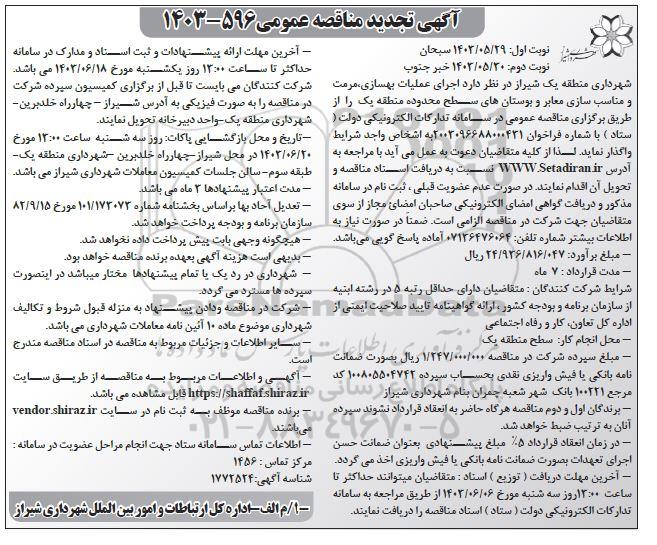 آگهی تجدید مناقصه عمومی ۵۹۶-۱۴۰۳
نوبت اول: ۱۴۰۳/۰۵/۲۹ سبحان
نوبت دوم: ۱۴۰۳/۰۵/۳۰ خبر جنوب
شهرداری منطقه یک شیراز در نظر دارد اجرای عملیات بهسازی،مرمت
و مناسب سازی معابر و بوستان های سطح محدوده منطقه یک را از
طریق برگزاری مناقصه عمومی در سامانه تدارکات الکترونیکی دولت (
ستاد ) با شماره فراخوان ۲۰۰۳۰۹۶۶۸۸۰۰۰۴۳۱به اشخاص واجد شرایط
واگذار نماید. لـذا از کلیه متقاضیان دعوت به عمل می آید با مراجعه به
آدرس WWW.Setadiran.ir نسبت به دریافت اسناد مناقصه و
تحویل آن اقدام نمایند. در صورت عدم عضویت قبلی ، ثبت نام در سامانه
مذکور و دریافت گواهی امضای الکترونیکی صاحبان امضائ مجاز از سوی
متقاضیان جهت شرکت در مناقصه الزامی است. ضمناً در صورت نیاز به
اطلاعات بیشتر شماره تلفن: ۰۷۱۳۶۴۷۶۰۶۴ آماده پاسخ گویی می‌باشد.
– مبلغ برآورد: ۲۴/۹۲۶/۸۱۶/۰۴۷ ریال
– مدت قرارداد : ۷ ماه
شرایط شرکت کنندگان : متقاضیان دارای حداقل رتبه ۵ در رشته ابنیه
از سازمان برنامه و بودجه کشور ، ارائه گواهینامه تایید صلاحیت ایمنی از
اداره کل تعاون، کار و رفاه اجتماعی
– محل انجام کار: سطح منطقه یک
– مبلغ سپرده شرکت در مناقصه ۱/۲۴۷/۰۰۰/۰۰۰ ریال بصورت ضمانت
نامه بانکی یا فیش واریزی نقدی بحساب سپرده ۱۰۰۸۰۵۵۰۴۷۴۲ کد
مرجع ۱۰۰۲۲۱ بانک شهر شعبه چمران بنام شهرداری شیراز
– برندگان اول و دوم مناقصه هرگاه حاضر به انعقاد قرارداد نشوند سپرده
آنان به ترتیب ضبط خواهد شد.
– در زمان انعقاد قرارداد ۵٪ مبلغ پیشنهادی بعنوان ضمانت حسن
اجرای تعهدات بصورت ضمانت نامه بانکی یا فیش واریزی اخذ می گردد.
– آخرین مهلت دریافت ( توزیع ) اسناد : متقاضیان میتوانند حداکثر تا
ساعت ۱۳:۰۰ روز سه شنبه مورخ ۱۴۰۳/۰۶/۰۶ از طریق مراجعه به سامانه
تدارکات الکترونیکی دولت ( ستاد ) اسناد مناقصه را دریافت نمایند.
– آخرین مهلت ارائه پیشنهادات و ثبت اسناد و مدارک در سامانه
حداکثر تا ساعت ۱۳:۰۰ روز یکشنبه مورخ ۱۴۰۳/۰۶/۱۸ می باشد.
شرکت کنندگان می بایست تا قبل از برگزاری کمیسیون سپرده شرکت
در مناقصه را به صورت فیزیکی به آدرس شیراز – چهارراه خلدبرین-
شهرداری منطقه یک-واحد دبیرخانه تحویل نمایند.
–تاریخ و محل بازگشایی پاکات: روز سه شنبه ساعت ۱۳:۰۰ مورخ
۱۴۰۳/۰۶/۲۰ در محل شیراز-چهارراه خلدبرین –شهرداری منطقه یک-
طبقه سوم- سالن جلسات کمیسیون معاملات شهرداری شیراز می باشد.
– مدت اعتبار پیشنهادها ۲ ماه می باشد.
– تعدیل آحاد بها براساس بخشنامه شماره ۱۰۱/۱۷۳۰۷۳ مورخ ۸۲/۹/۱۵
سازمان برنامه و بودجه پرداخت خواهد شد.
– هیچگونه وجهی بابت پیش پرداخت داده نخواهد شد.
– بدیهی است هزینه آگهی بعهده برنده مناقصه خواهد بود.
– شهرداری در رد یک یا تمام پیشنهادها مختار میباشد در اینصورت
سپرده ها مسترد می گردد.
– شرکت در مناقصه ودادن پیشنهاد به منزله قبول شروط و تکالیف
شهرداری موضوع ماده ۱۰ آئین نامه معاملات شهرداری می باشد.
– سایر اطلاعات و جزئیات مربوط به مناقصه در اسناد مناقصه مندرج
است.
– آگهی و اطلاعات مربوط به مناقصه از طریق سایت
https://shaffaf.shiraz.ir قابل مشاهده می باشد.
– برنده مناقصه موظف به ثبت نام در سایت vendor.shiraz.ir
میباشند.
– اطلاعات تماس سامانه ستاد جهت انجام مراحل عضویت در سامانه :
مرکز تماس : ۱۴۵۶
شناسه آگهی: ۱۷۷۲۵۲۴
۱/م الف-اداره کل ارتباطات و امور بین الملل شهرداری شیراز
ParsNamadData
۰۲۱-۸۸۳۴۹۶۷۰-۵